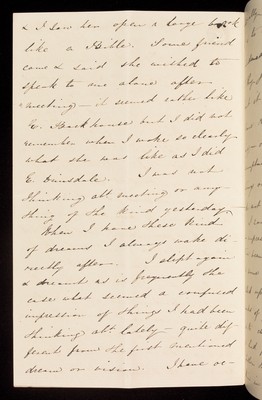 & I saw her open a large book
like a Bible. Some friend
came & said she wished to
speak to me alone after
meeting — it seemed either like
E. Backhouse but I did not
remember when I woke so clearly
what she was like as I did
E. Tinsdale. I was not
thinking abt meeting or any-
thing of the kind yesterday.
When I have these kind
of dreams I always wake di-
rectly after. I slept again
& dreamt as is frequently the
case what seemed a confused
impression of things I had been
thinking abt lately — quite dif-
ferent from the first mentioned
dream or vision. I have oc-